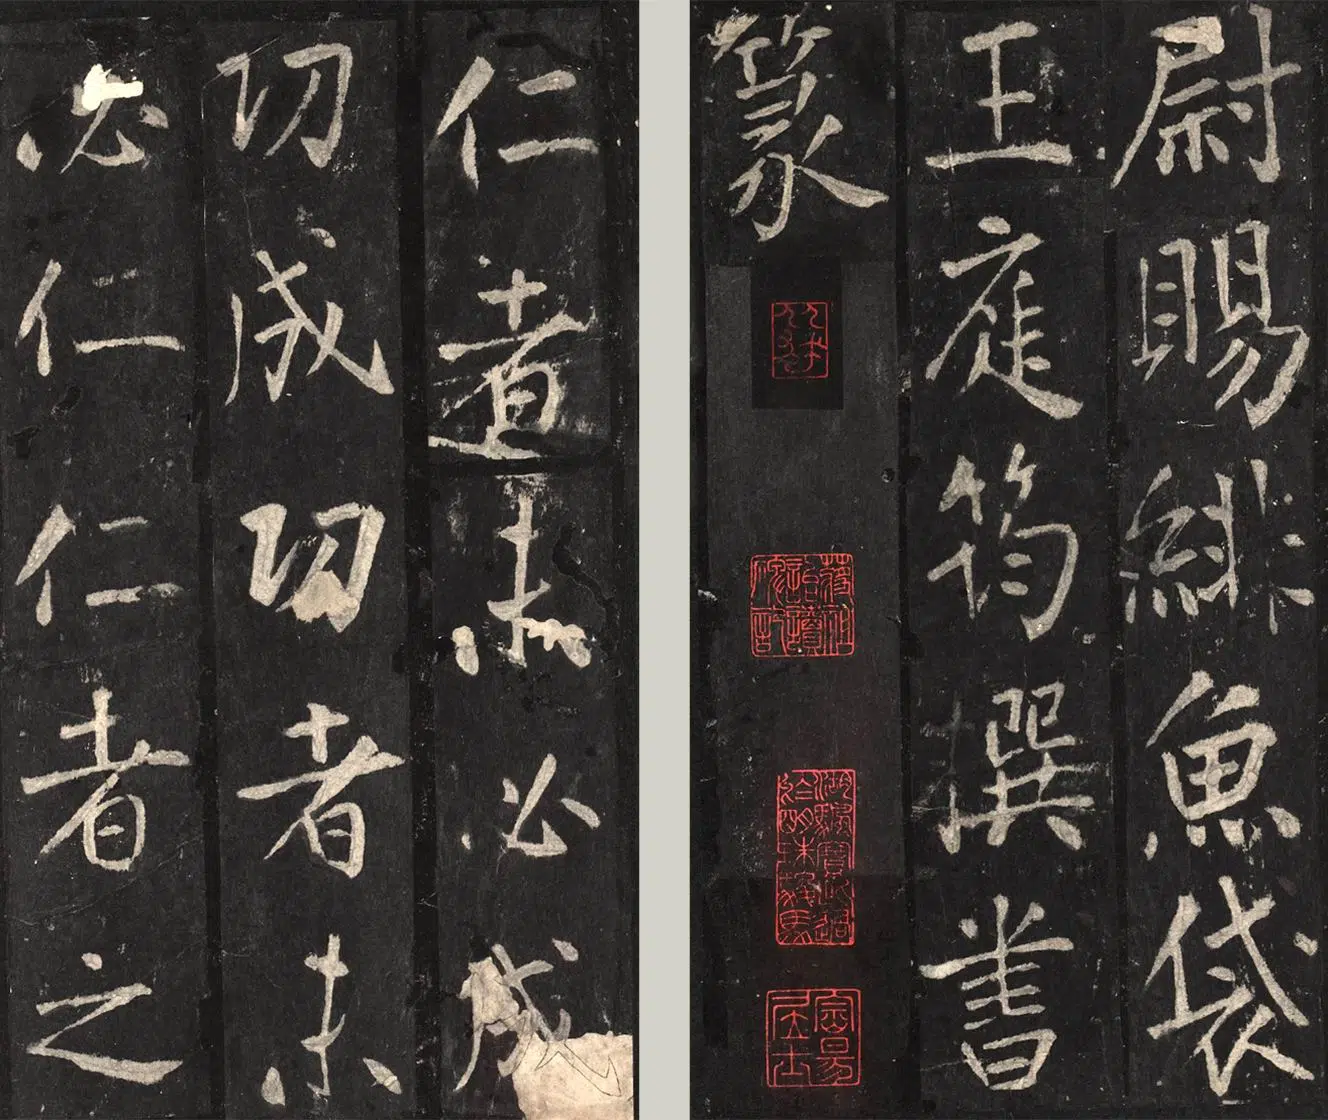 尉賜緋魚袋
王庭筠撰書
篆
仁者未必成
功成功者未
必仁仁者之